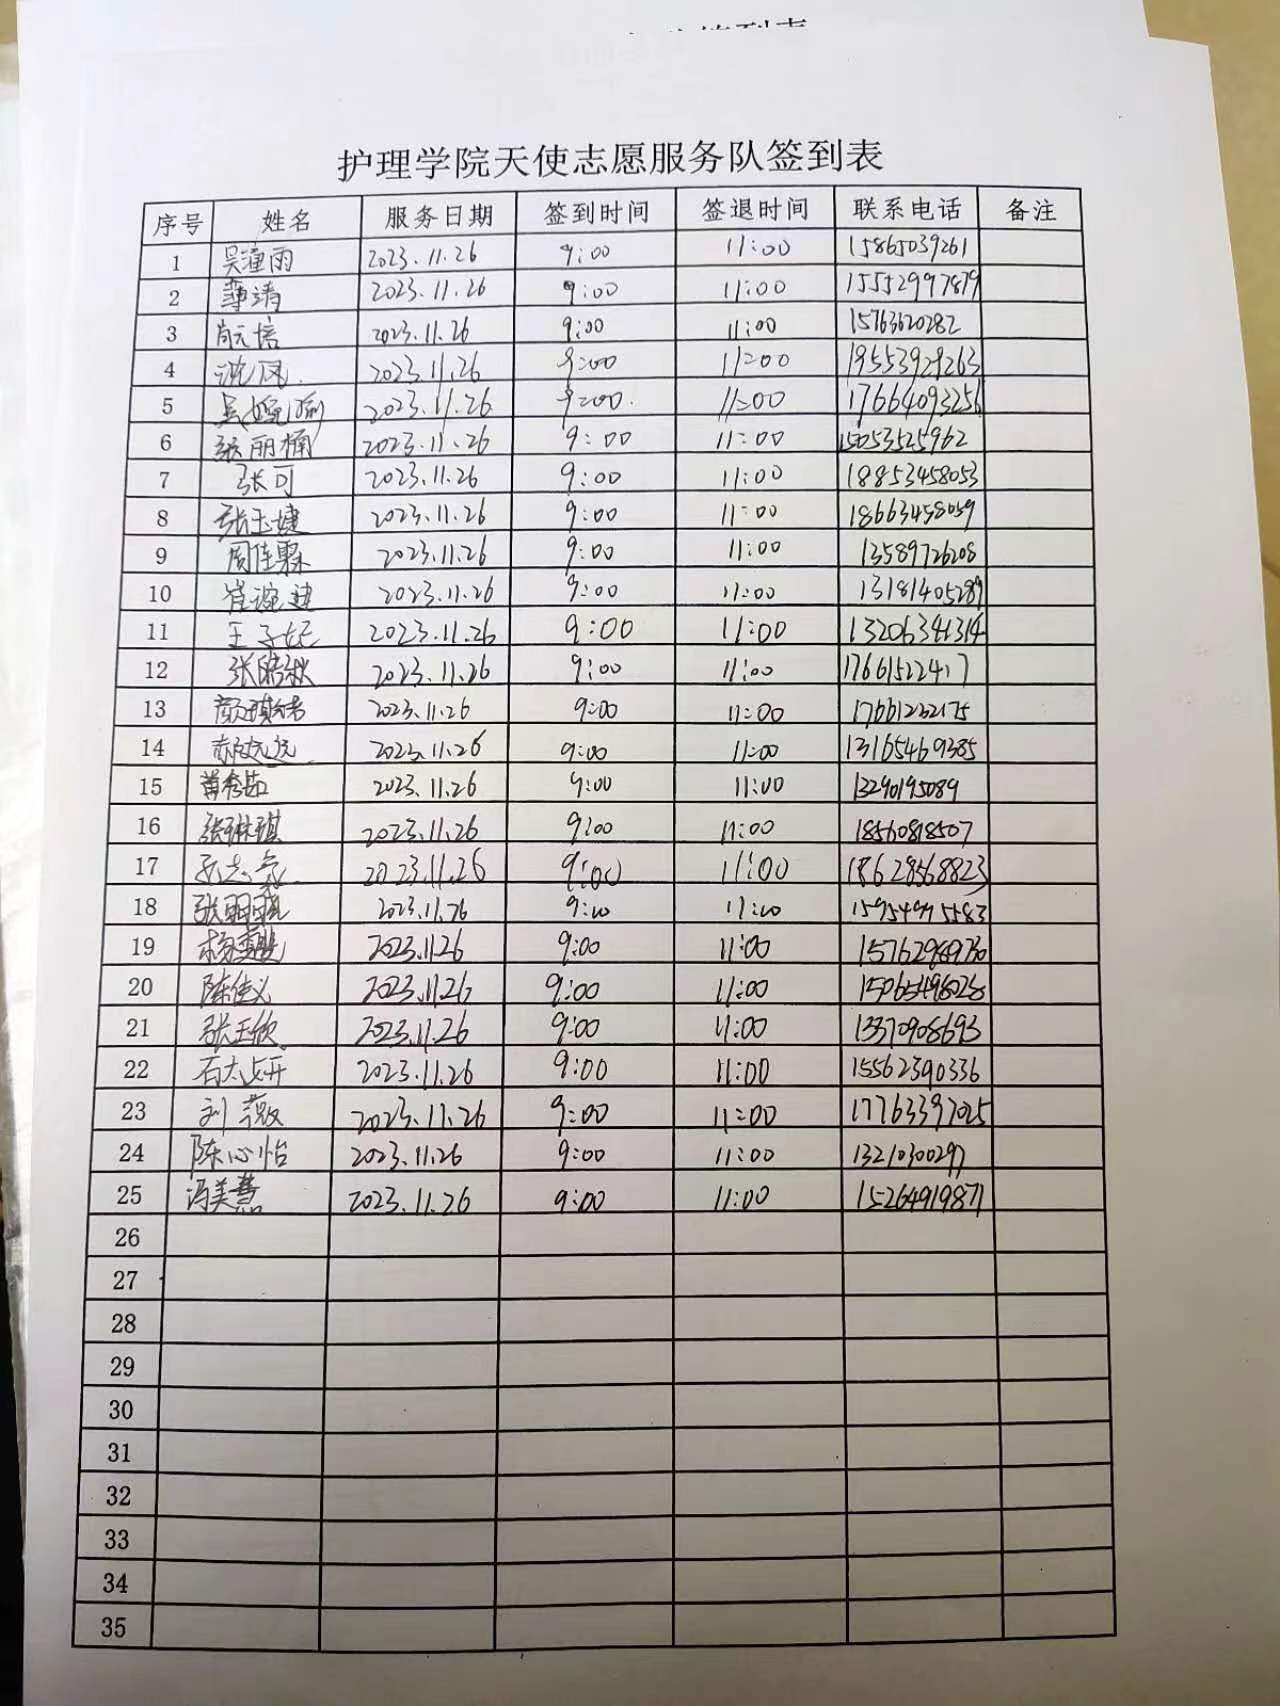 护理学院天使志愿服务队签到表
序号 姓名 服务日期 签到时间 签退时间 联系电话 备注
1 吴潼雨 2023.11.26 9:00 11:00 15865039261
2 靖 2023.11.26 9:00 11:00 15552997879
3 肖培 2023.11.26 9:00 11:00 15763620282
4 沈凤 2023.11.26 9:00 11:00 19553929263
5 吴婉瑜 2023.11.26 9:00 11:00 17664093256
6 张丽楠 2023.11.26 9:00 11:00 15053525962
7 张可 2023.11.26 9:00 11:00 18853458053
8 张玉婕 2023.11.26 9:00 11:00 18663458059
9 周佳霖 2023.11.26 9:00 11:00 13589726208
10 崔 2023.11.26 9:00 11:00 13181405289
11 王子妘 2023.11.26 9:00 11:00 13206341314
12 张皓秋 2023.11.26 9:00 11:00 17661522417
13 颜琪 2023.11.26 9:00 11:00 17661232175
14 郝 2023.11.26 9:00 11:00 13165469385
15 2023.11.26 9:00 11:00 13290195089
16 张琳琪 2023.11.26 9:00 11:00 18560818507
17 2023.11.26 9:00 11:00 18628568823
18 张明 2023.11.26 9:00 11:00 15954975583
19 杨 2023.11.26 9:00 11:00 15762989730
20 陈佳义 2023.11.26 9:00 11:00 15065498028
21 张玉欣 2023.11.26 9:00 11:00 13370908693
22 石 2023.11.26 9:00 11:00 15562390336
23 刘薇 2023.11.26 9:00 11:00 17763397025
24 陈心怡 2023.11.26 9:00 11:00 13210300297
25 冯美慧 2023.11.26 9:00 11:00 15264919871
26
27
28
29
30
31
32
33
34
35